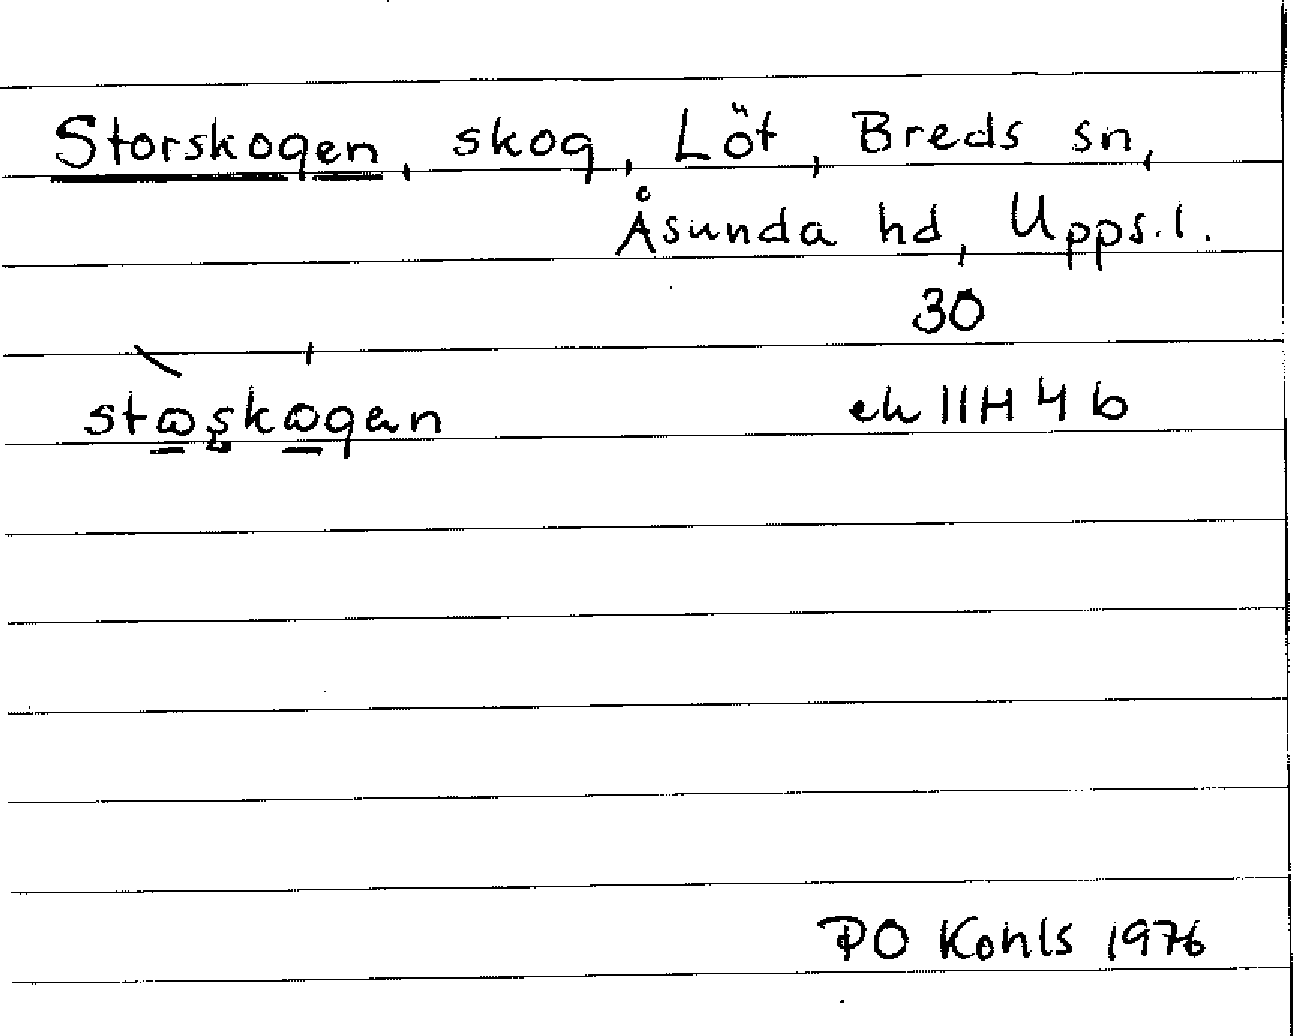 Storskogen, skog, Löt, Breds sn,
Åsunda hd, Upps.l.
30
ek 11H 4 b
PO Kohls 1976